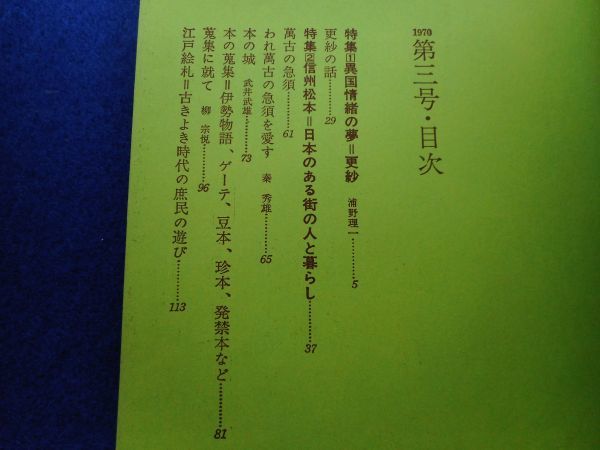 1970
第三号・目次
特集①異国情緒の夢＝更紗 浦野理一…………5
更紗の話…………29
特集②信州松本＝日本のある街の人と暮らし…………37
萬古の急須…………61
われ萬古の急須を愛す 秦 秀雄…………65
本の城 武井武雄…………73
本の蒐集＝伊勢物語、ゲーテ、豆本、珍本、発禁本など…………81
蒐集に就て 柳 宗悦…………96
江戸絵札＝古きよき時代の庶民の遊び…………113